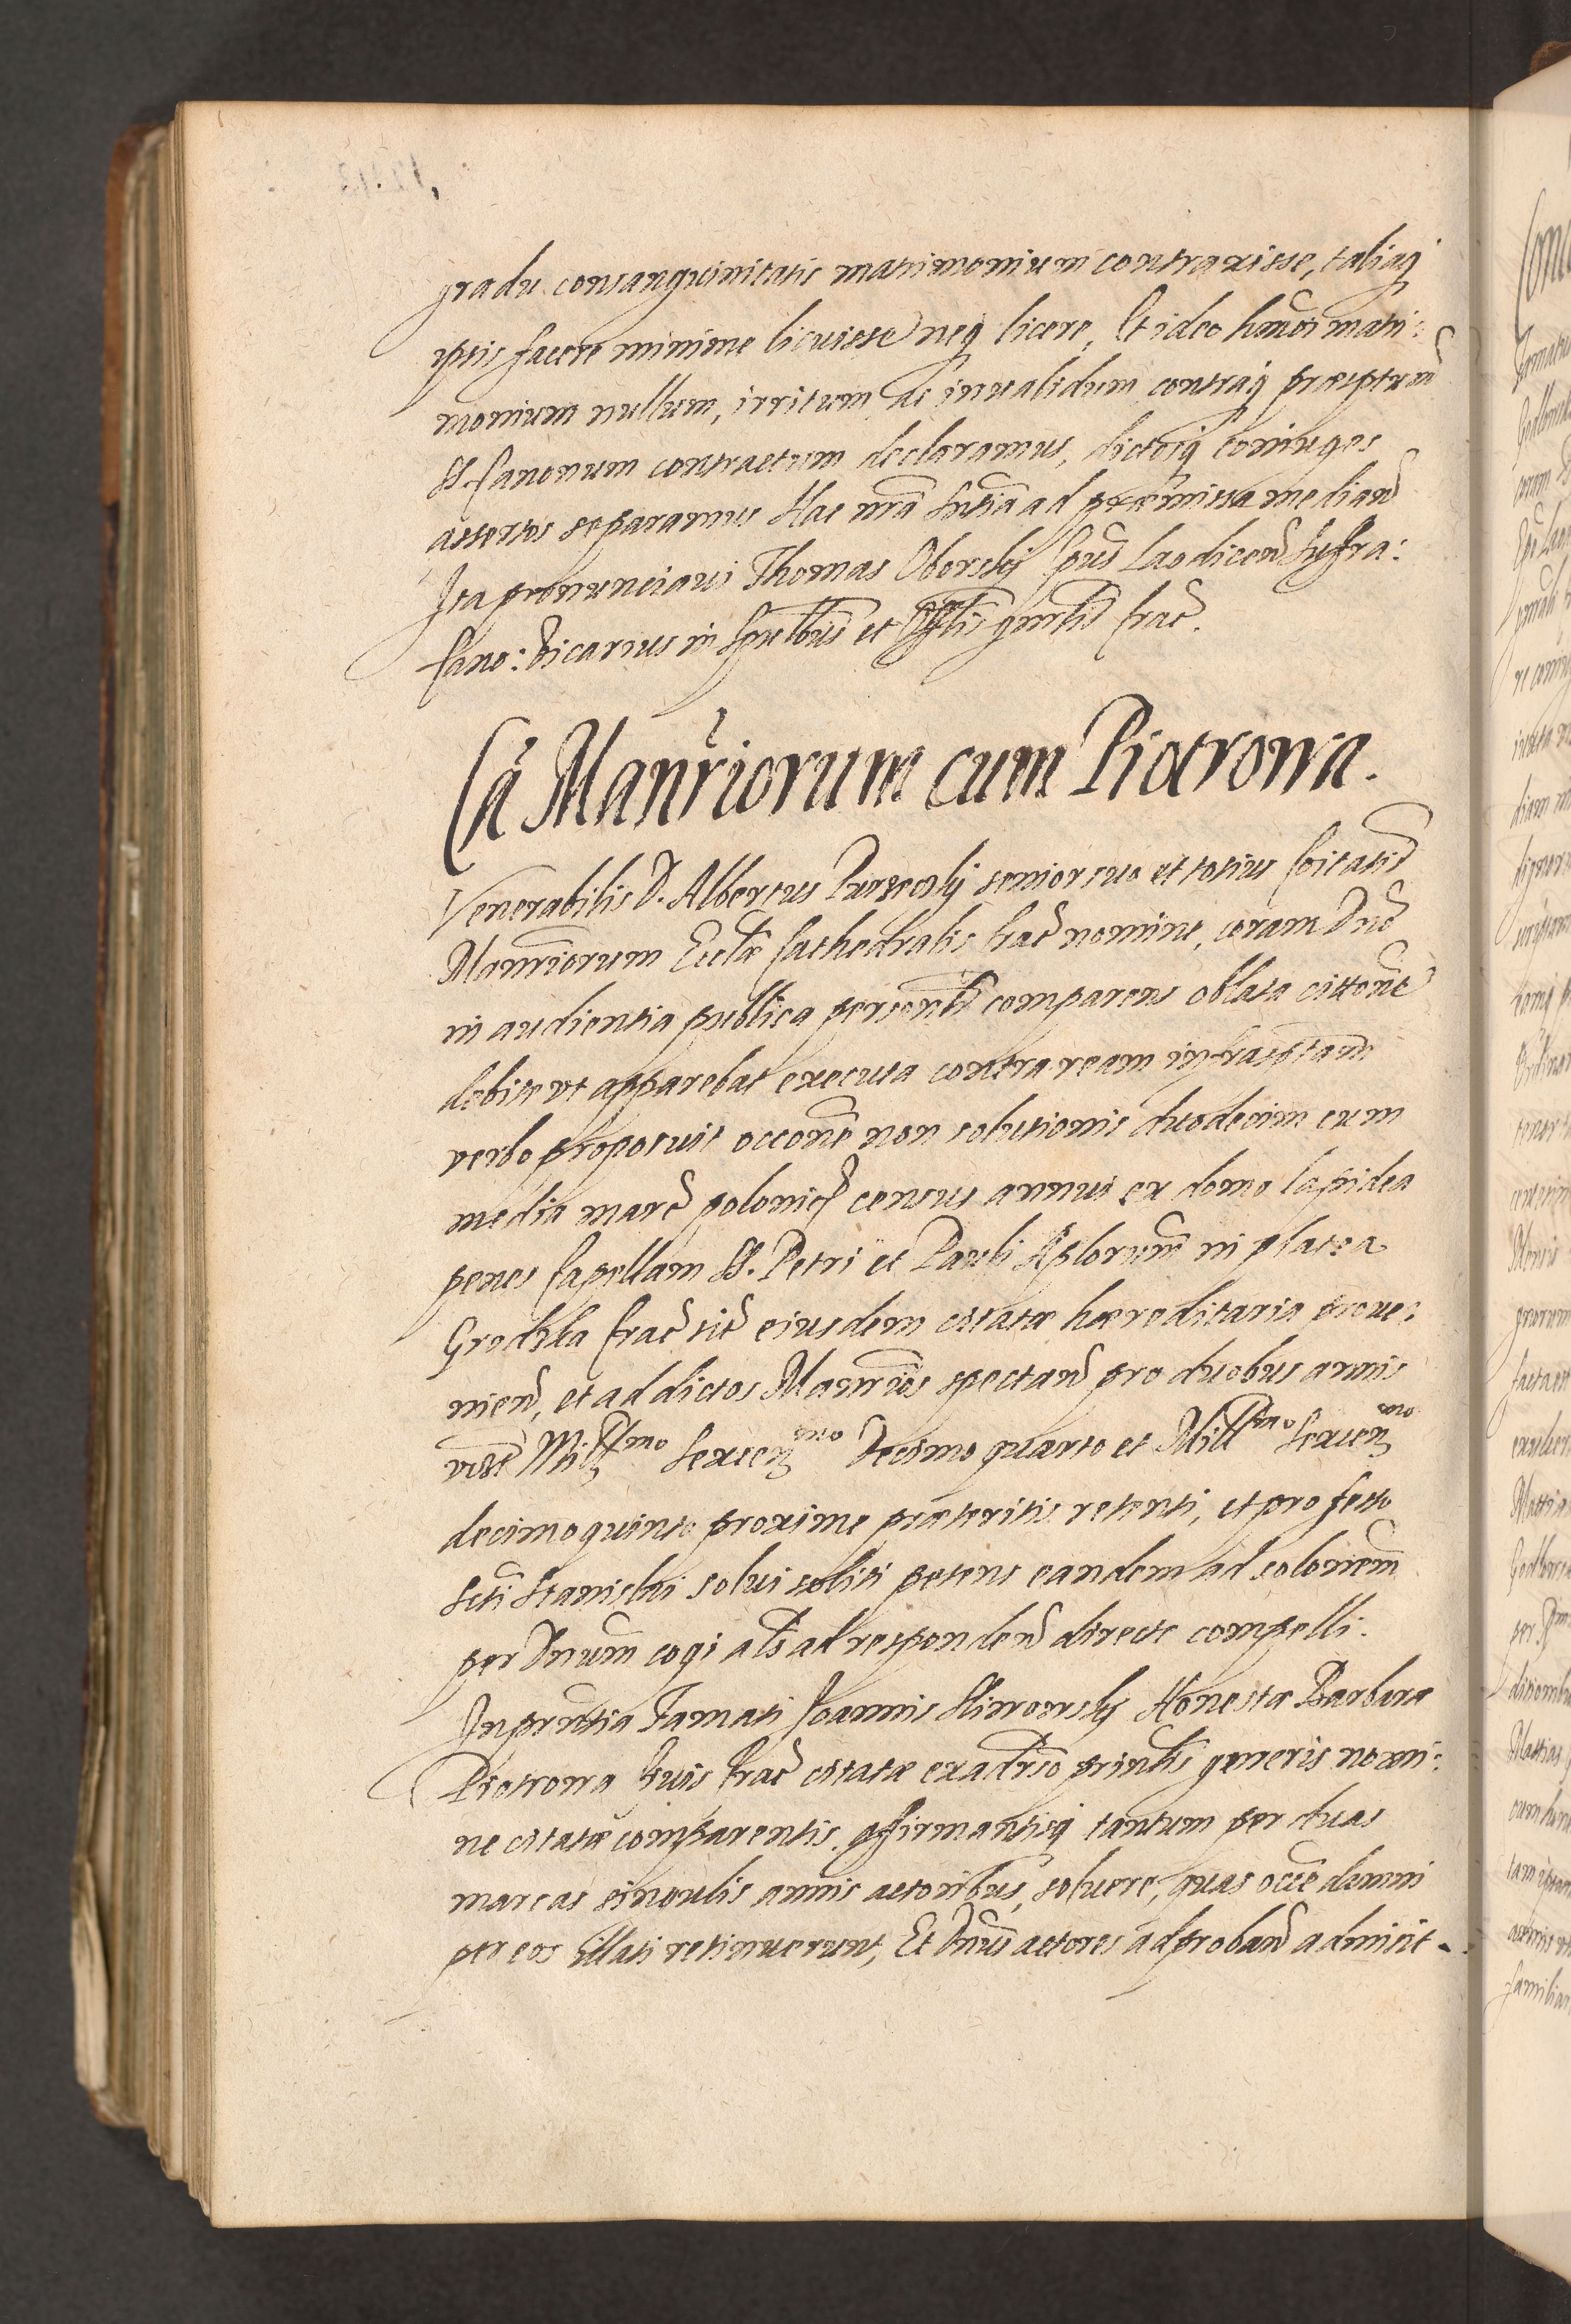 gradu consanguinitatis matrimonium contraxisse, taliaq
ipsis facere minime licuisse neq licere, Et ideo hmoi matri:
monium nullum, irritum ac inualidum contraq præsptum
SS. Canonum contractum declaramus, dictosq coniuges
assertos separamus Hac nra sntia ad præmissa median
Ita pronunciaui Thomas Oborsky Epus Laodicen Suffra:
Cano: Vicarius in Spualibus et Offlis gnrlis Crac.
Ca Manriorum cum Piotrowa.
Venerabilis D. Albertus senior suo et totius Coitatis
Manriorum Ecclæ Cathedralis Crac nomine, coram Dno
in audientia publica personlr comparens oblata cittone
debite vt apparebat executa contra ream infrasptam
verbo proposuit occone non solutionis duodecim cum
media marc polonic census annui ex domo lapidea
penes Capellam SS. Petri et Pauli Aplorum in platea
Grodzka Crac sit eiusdem citatæ hæreditaria proue:
nien, et ad dictos Manrios spectan pro duobus annis
vdet Millmo Sexcenmo Decimo quarto et Millmo Sexcenmo
decimo quinto proxime præteritis retenti, et pro festo
Scti Stanislai solui soliti petens eandem ad solonem
per Dnum cogi als ad responden directe compelli.
In prntia Famati Joannis Honesta Barbara
Piotrowa Ciuis Crac citatæ ex aduerso prinlis generis nomi:
ne citatæ comparentis, affirmantisq tantum per duas
marcas singulis annis actoribus soluere, quas occe damni
per eos illati retinuerunt, Et Dnus actores ad proban admisit